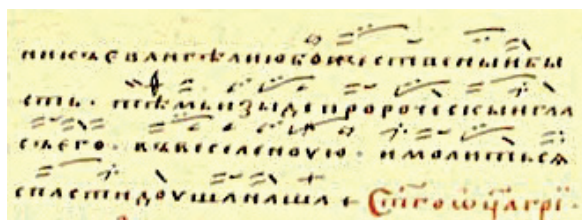 никъ евангѣлию божествены и бы
сть · тѣмь изыде пророческыи гла
съ его · въ вьселеноую · и молиться
спасти доуша наша +